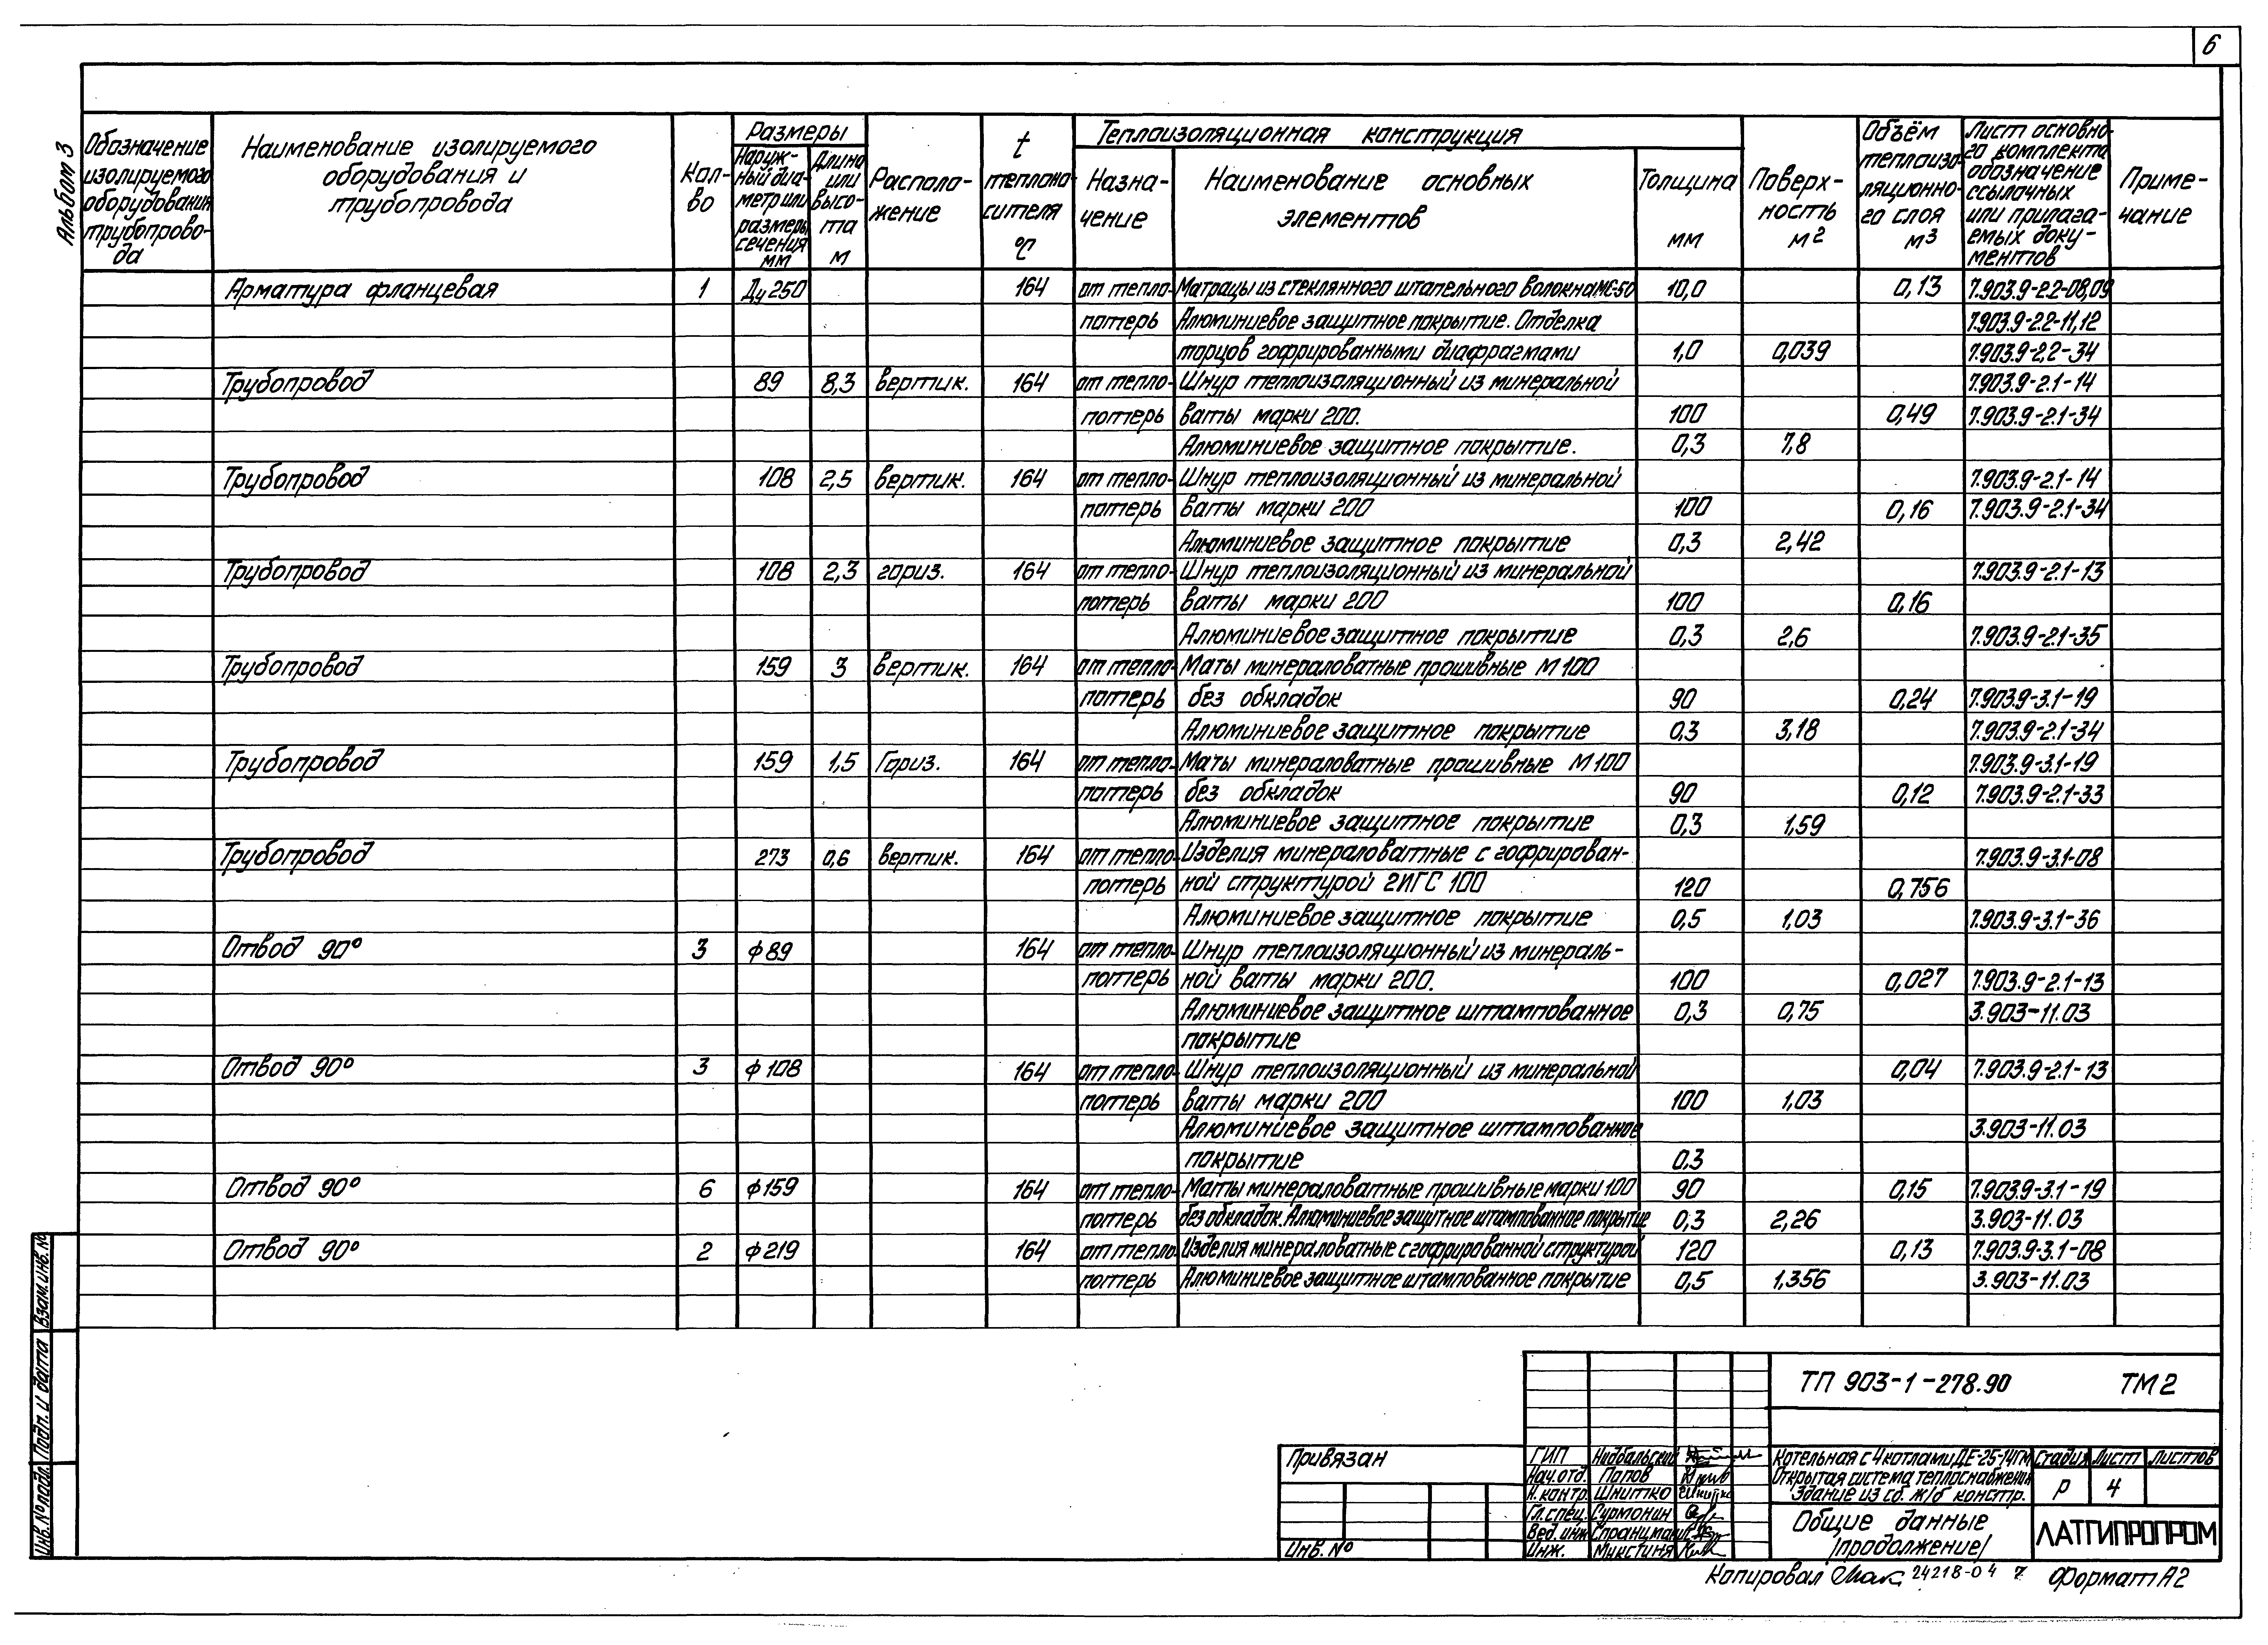 6
Альбом 3
Обозначение изолируемого оборудования, трубопрово-да
Наименование изолируемого оборудования и трубопровода
Кол-во
Размеры
Наруж-ный диа-метр или размеры сечения мм
Длина или высо-та м
Располо-жение
t теплоно-сителя °С
Теплоизоляционная конструкция
Назна-чение
Наименование основных элементов
Толщина мм
Поверх-ность м²
Объём теплоизо-ляционно-го слоя м³
Лист основно-го комплекта обозначение ссылочных или прилага-емых доку-ментов
Приме-чание
Арматура фланцевая 1 Ду 250 164 от тепло- Матрацы из стеклянного штапельного волокна МС-50 10,0 0,13 7.903.9-2.2-08,09
потерь Алюминиевое защитное покрытие. Отделка 7.903.9-2.2-11,12
торцов гофрированными диафрагмами 1,0 0,039 7.903.9-2.2-34
Трубопровод 89 8,3 вертик. 164 от тепло- Шнур теплоизоляционный из минеральной 7.903.9-2.1-14
потерь ваты марки 200. 100 0,49 7.903.9-2.1-34
Алюминиевое защитное покрытие. 0,3 7,8
Трубопровод 108 2,5 вертик. 164 от тепло- Шнур теплоизоляционный из минеральной 7.903.9-2.1-14
потерь ваты марки 200 100 0,16 7.903.9-2.1-34
Алюминиевое защитное покрытие 0,3 2,42
Трубопровод 108 2,3 гориз. 164 от тепло- Шнур теплоизоляционный из минеральной 7.903.9-2.1-13
потерь ваты марки 200 100 0,16
Алюминиевое защитное покрытие 0,3 2,6 7.903.9-2.1-35
Трубопровод 159 3 вертик. 164 от тепло- Маты минераловатные прошивные М100
потерь без обкладок 90 0,24 7.903.9-3.1-19
Алюминиевое защитное покрытие 0,3 3,18 7.903.9-2.1-34
Трубопровод 159 1,5 Гориз. 164 от тепло- Маты минераловатные прошивные М100 7.903.9-3.1-19
потерь без обкладок 90 0,12 7.903.9-2.1-33
Алюминиевое защитное покрытие 0,3 1,59
Трубопровод 273 0,6 вертик. 164 от тепло- Изделия минераловатные с гофрирован- 7.903.9-3.1-08
потерь ной структурой 2ИГС 100 120 0,756
Алюминиевое защитное покрытие 0,5 1,03 7.903.9-3.1-36
Отвод 90° 3 ф89 164 от тепло- Шнур теплоизоляционный из минераль-
потерь ной ваты марки 200. 100 0,027 7.903.9-2.1-13
Алюминиевое защитное штампованное 0,3 0,75 3.903-11.03
покрытие
Отвод 90° 3 ф108 164 от тепло- Шнур теплоизоляционный из минеральной 0,04 7.903.9-2.1-13
потерь ваты марки 200 100 1,03
Алюминиевое защитное штампованное 3.903-11.03
покрытие 0.3
Отвод 90° 6 ф159 164 от тепло- Маты минераловатные прошивные марки 100 90 0,15 7.903.9-3.1-19
потерь без обкладок. Алюминиевое защитное штампованное покрытие 0,3 2,26 3.903-11.03
Отвод 90° 2 ф219 164 от тепло- Изделия минераловатные с гофрированной структурой 120 0,13 7.903.9-3.1-08
потерь Алюминиевое защитное штампованное покрытие 0,5 1,356 3.903-11.03
Взам.инв.№
Подп. и дата
Инв.№ подл.
ТП 903-1-278.90 ТМ2
Привязан
Инв.№
ГИП Нидбальский
Нач.отд. Попов
Н.контр. Шнитко
Гл.спец. Сурмонин
Вед.инж
Инж. Микстиня
Котельная с 4 котлами ДЕ-25-14ГМ
Открытая система теплоснабжения
Здание из сб. ж/б констр.
Стадия Лист Листов
Р 4
Общие данные
/продолжение/
ЛАТГИПРОПРОМ
Копировал 24218-04 7 Формат А2